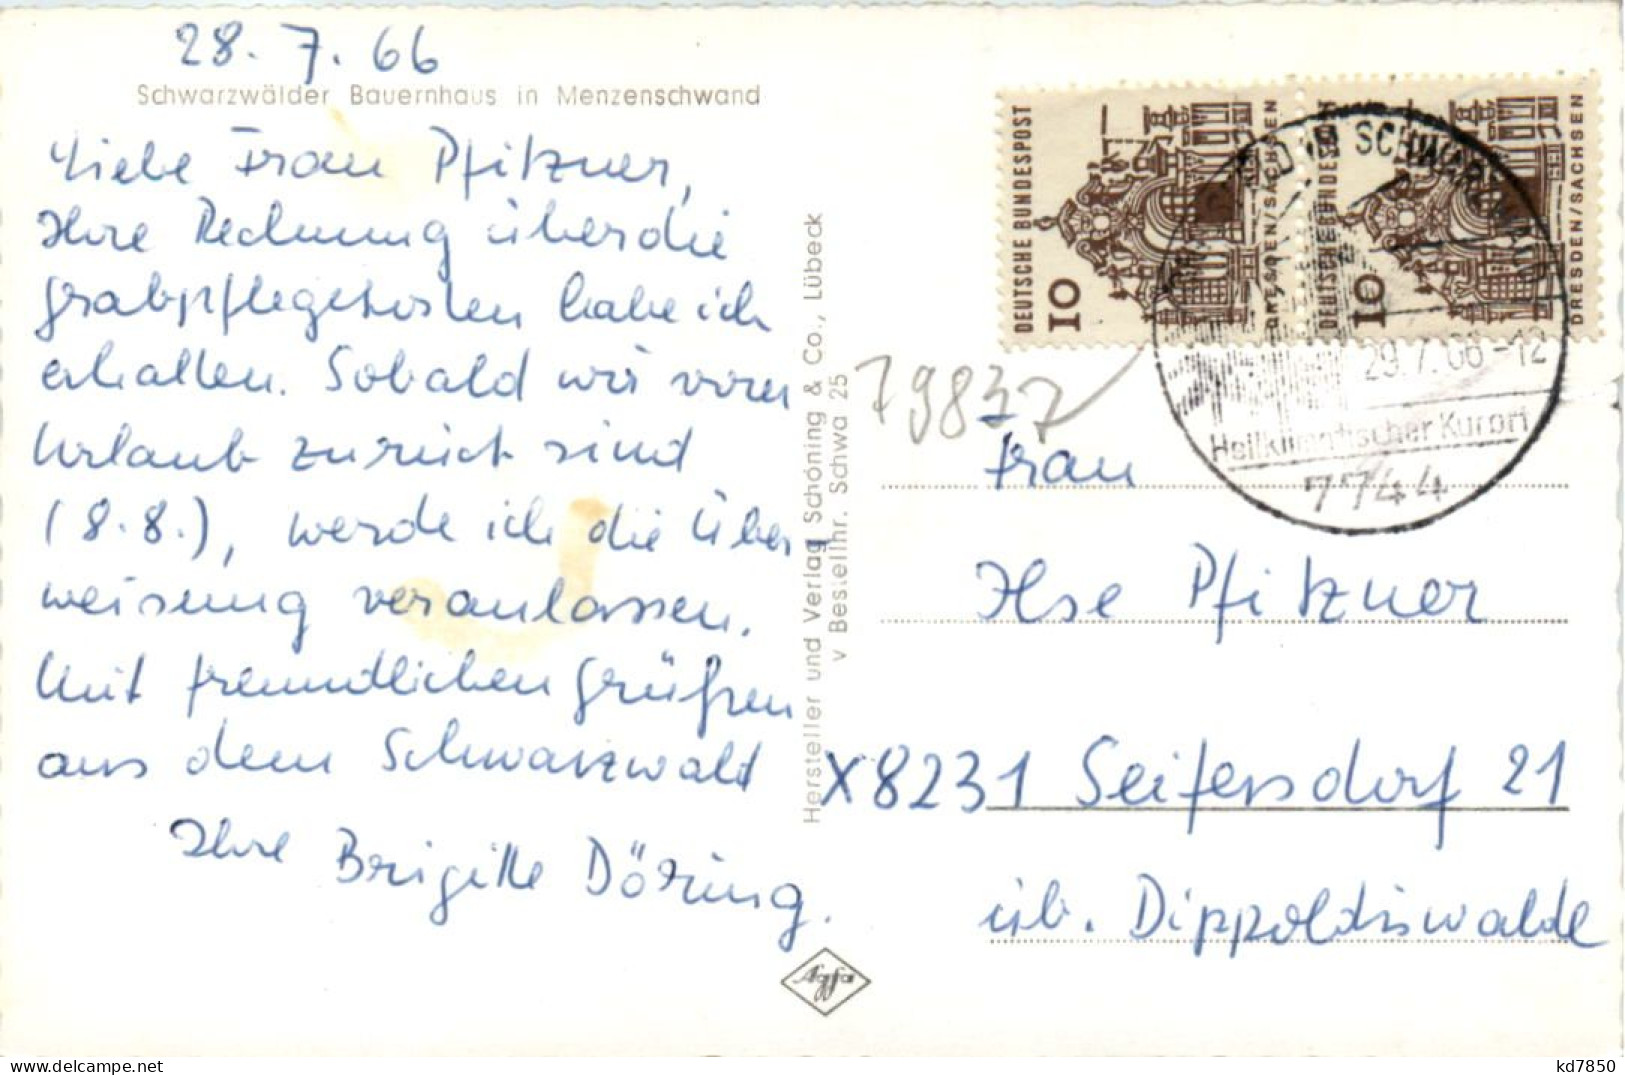 28.7.66
Schwarzwälder Bauernhaus in Menzenschwand
Liebe Frau Pfitzner,
Ihre Rechnung über die
Grabpflegekosten habe ich
erhalten. Sobald wir vom
Urlaub zurück sind
(8.8.), werde ich die Über-
weisung veranlassen.
Mit freundlichen Grüßen
aus dem Schwarzwald
Ihre Brigitte Döring.
Hersteller und Verlag Schöning & Co., Lübeck
Bestellnr. Schwa 25
Agfa
DEUTSCHE BUNDESPOST
10
DRESDEN/SACHSEN
DEUTSCHE BUNDESPOST
10
DRESDEN/SACHSEN
SCHWARZWALD
29.7.66-12
Heilklimatischer Kurort
7744
79837
Frau
Ilse Pfitzner
X8231 Seifersdorf 21
üb. Dippoldiswalde
kd7850